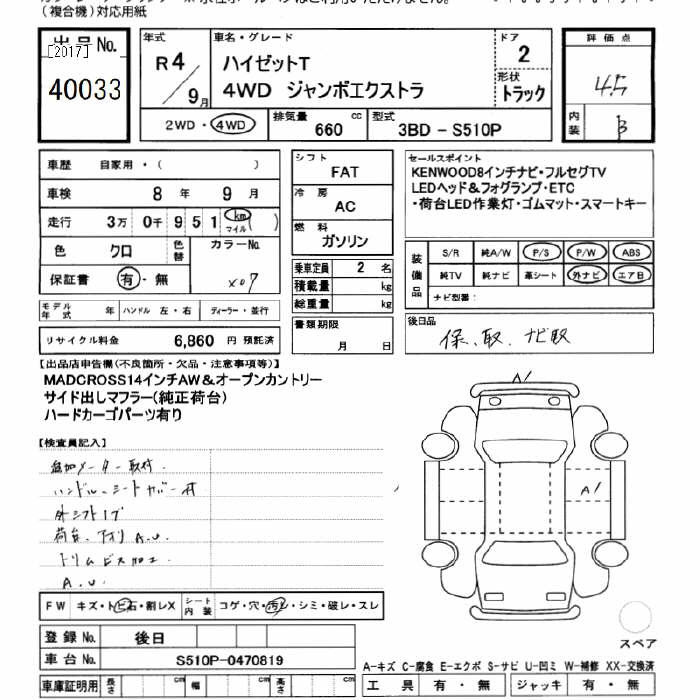 (複合機)対応用紙
出品No.
[2017]
40033
年式
R4/9月
車名・グレード
ハイゼットT
4WD ジャンボエクストラ
ドア
2
形状
トラック
2WD・4WD
排気量 660 cc
型式 3BD-S510P
評価点
4.5
内装
B
車歴 自家用・( )
車検 8年 9月
走行 3万 0千 9 5 1 km マイル ( )
色 クロ
色替
カラーNo. X07
保証書 有・無
モデル年式 年 ハンドル 左・右 ディーラー・並行
リサイクル料金 6,860 円 預託済
シフト
FAT
冷房
AC
燃料
ガソリン
乗車定員 2 名
積載量 kg
総重量 kg
書類期限
月 日
セールスポイント
KENWOOD8インチナビ・フルセグTV
LEDヘッド&フォグランプ・ETC
・荷台LED作業灯・ゴムマット・スマートキー
装備品
S/R 純A/W P/S P/W ABS
純TV 純ナビ 革シート 外ナビ エアB
ナビ型番:
後日品
保、取、ナビ取
【出品店申告欄(不良箇所・欠品・注意事項等)】
MADCROSS14インチAW&オープンカントリー
サイド出しマフラー(純正荷台)
ハードカーゴパーツ有り
【検査員記入】
追加メーター取付
ハンドル、シートカバー付
外シフトノブ
荷台、アオリ A.U.
トリムビス加工
A.U.
A1
FW キズ・トビ石・割レX
シート内装 コゲ・穴・汚レ・シミ・破レ・スレ
登録No. 後日
車台No. S510P-0470819
車庫証明用 長さ cm 幅 cm 高さ cm
スペア
A-キズ C-腐食 E-エクボ S-サビ U-凹ミ W-補修 XX-交換済
工具 有・無 ジャッキ 有・無